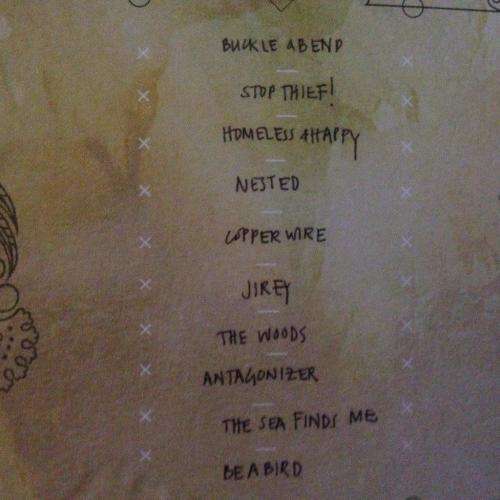 BUCKLE & BEND
STOP THIEF!
HOMELESS & HAPPY
NESTED
COPPER WIRE
JIREY
THE WOODS
ANTAGONIZER
THE SEA FINDS ME
BE A BIRD